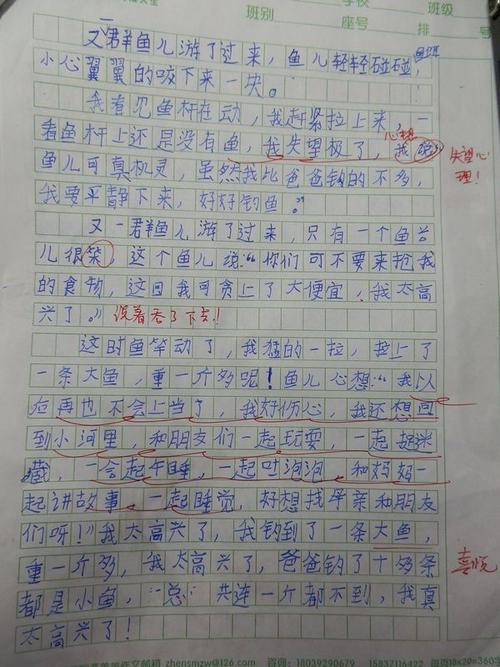 学校 班级
班别 座号 排 号
又一群鱼儿游了过来，鱼儿轻轻碰碰，
小心翼翼的咬下来一块。
我看见鱼杆在动，我赶紧拉上来，一
看鱼杆上还是没有鱼，我失望极了，心想 我
失望心理！
鱼儿可真机灵，虽然我比爸爸钓的不多，
我要平静下来，好好钓鱼。”
又一群鱼儿游了过来，只有一个鱼
儿很笨，这个鱼儿说：“你们可不要来抢我
的食物，这回我可贪上了大便宜，我太高
兴了。” 说着吞了下去！
这时鱼竿动了，我猛的一拉，拉上了
一条大鱼，重一斤多呢！鱼儿心想：“我以
后再也不会上当了，我好伤心，我还想回
到小河里，和朋友们一起玩耍，一起捉迷
藏，一会起午睡，一起吐泡泡，和妈妈一
起讲故事，一起睡觉，好想找母亲和朋友
们呀！》我太高兴了，我钓到了一条大鱼，
喜悦
重一斤多，我太高兴了，爸爸钓了十多条
都是小鱼，总共连一斤都不到，我真
太高兴了！
邮箱 zhensmzw@126.com 咨询：18039290679